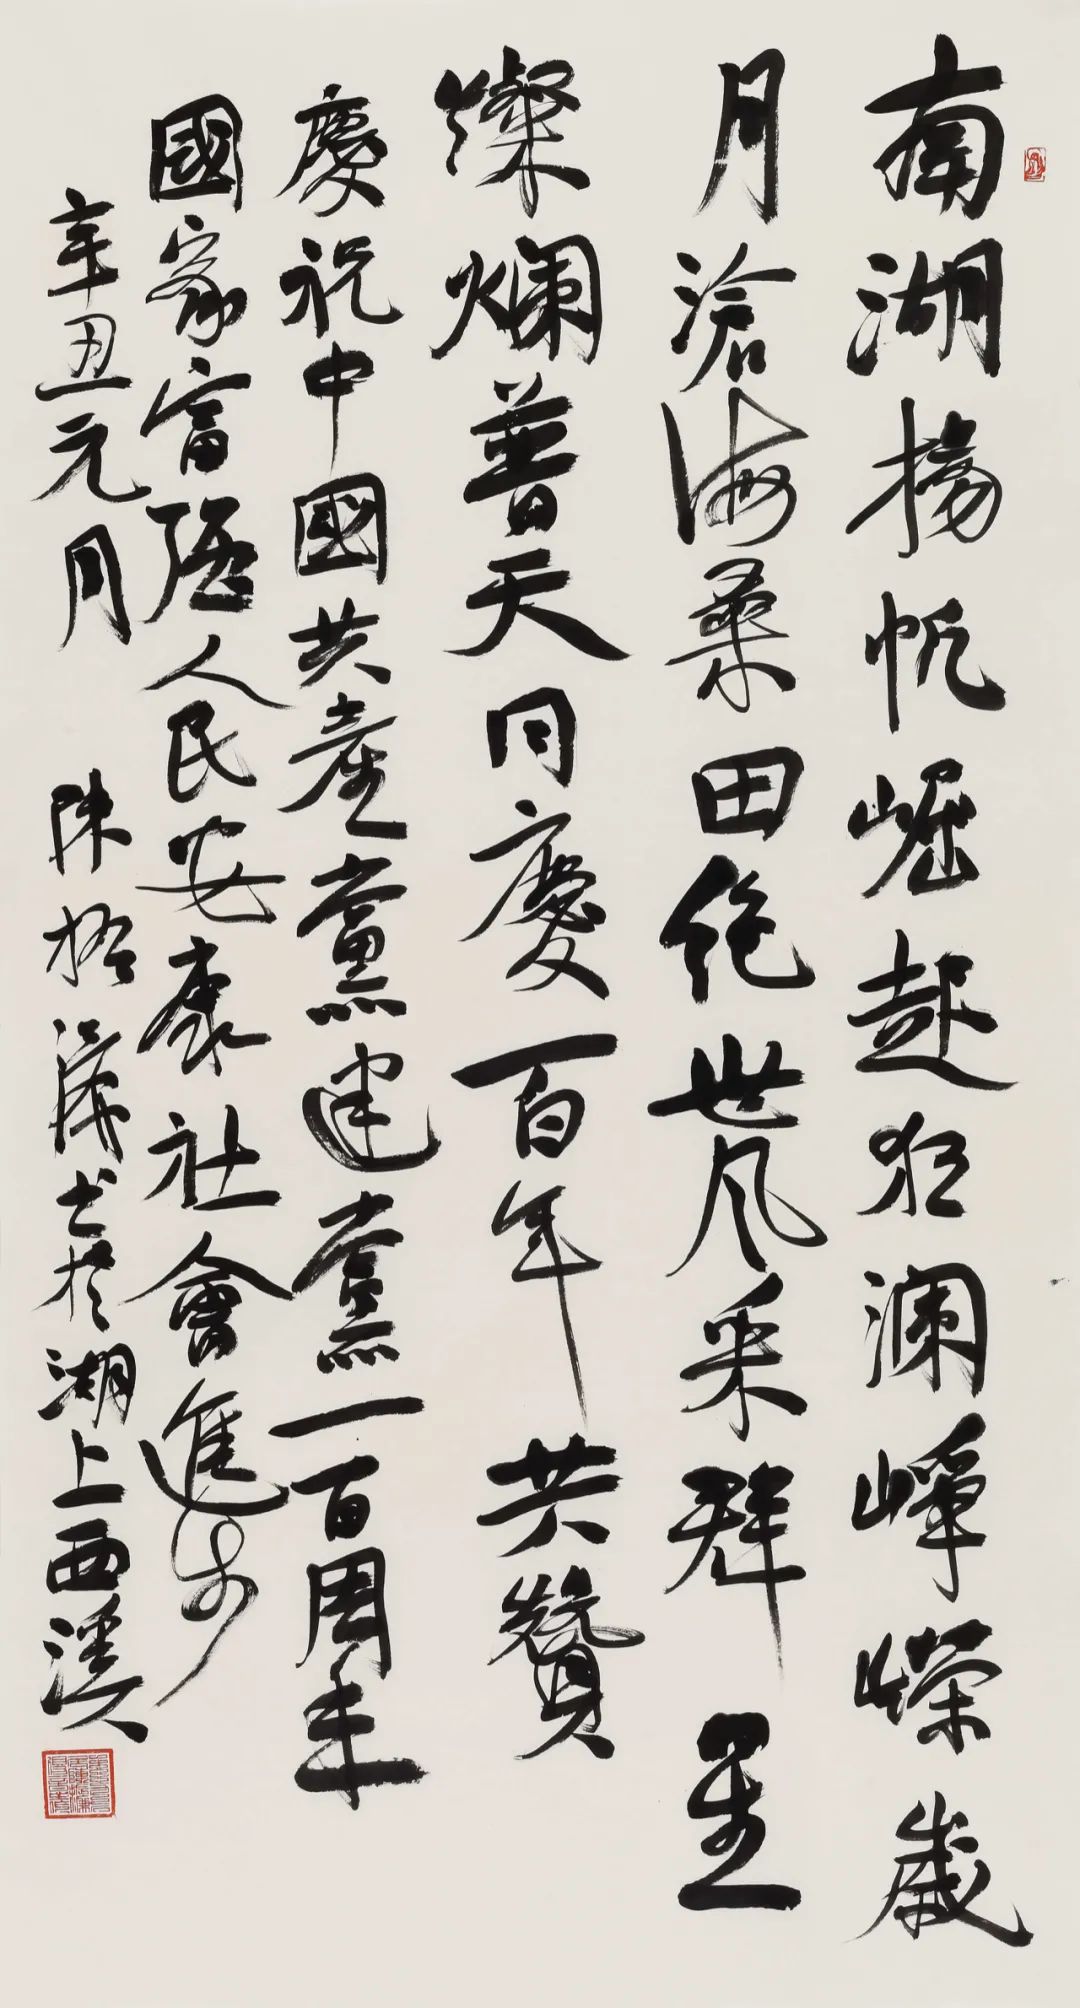 南湖揚帆崛起狂瀾崢嶸歲
月滄海桑田絶世風采群星
燦爛普天同慶百年共贊
慶祝中國共產黨建黨一百周年
國家富强人民安康社會進步
辛丑元月 陳振濂書於湖上西溪